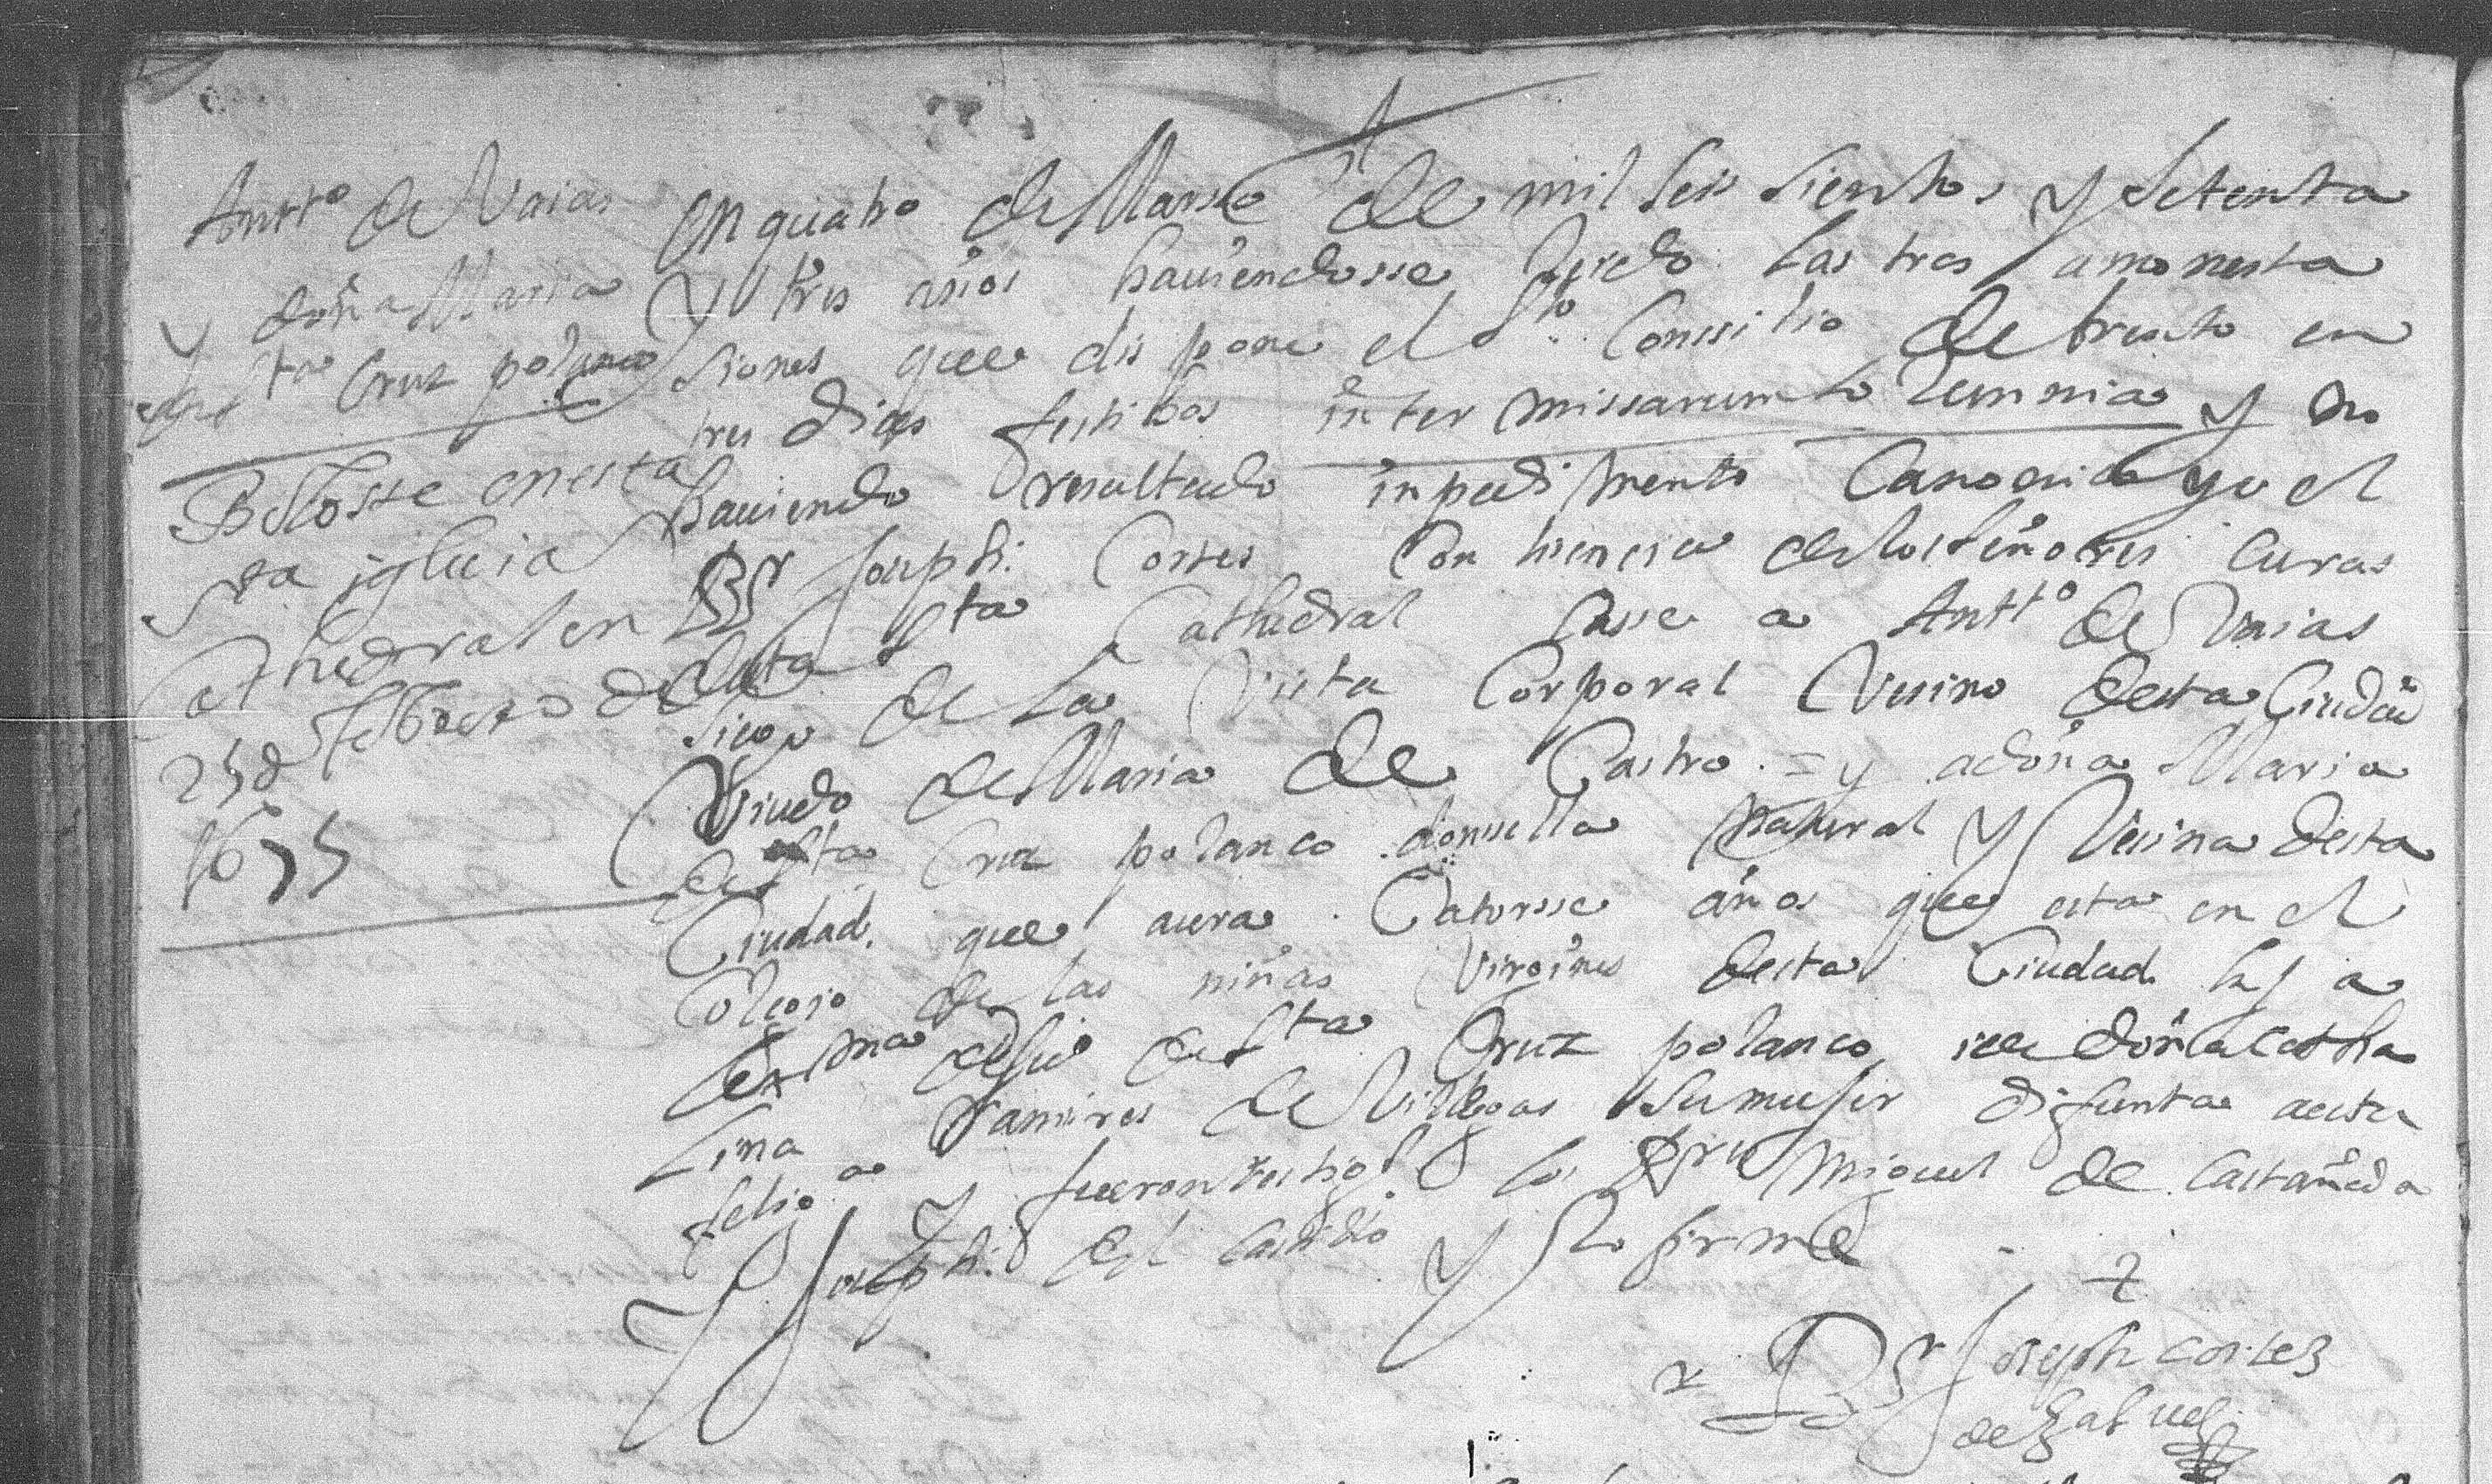 Antto de Vaias
y doña Maria
de sta Cruz polanco
Belosse en esta
sta iglecia
Cathedral en
25 de Febrero de
1675
en quatro de Marso de mil seis sientos y setenta
y tres años haviendosse leydo las tres amonesta
siones que dispone el sto Conssilio de trento en
tres dias festibos inter missarum solemnia y no
haviendo resultado inpedimento Canonico yo el
Br Joseph Cortes Con lisencia de los señores Curas
desta sta Cathedral Casse a Antto de Vaias
siego de la Vista Corporal Vesino desta Ciudad
Viudo de Maria de Castro = y a doña Maria
de sta Cruz polanco donssella natural y Vesina desta
Ciudad que aura Catorsse años que esta en el
Colegio de las niñas Virgines desta Ciudad hija
lexma de de sta Cruz polanco y de doña Catha
lina Ramires de Villegas su mujer difunta desta
felig.a y fueron testigos los Bres Miguel de Castañeda
y Joseph del Castillo y lo firme
Br Joseph cortes
de